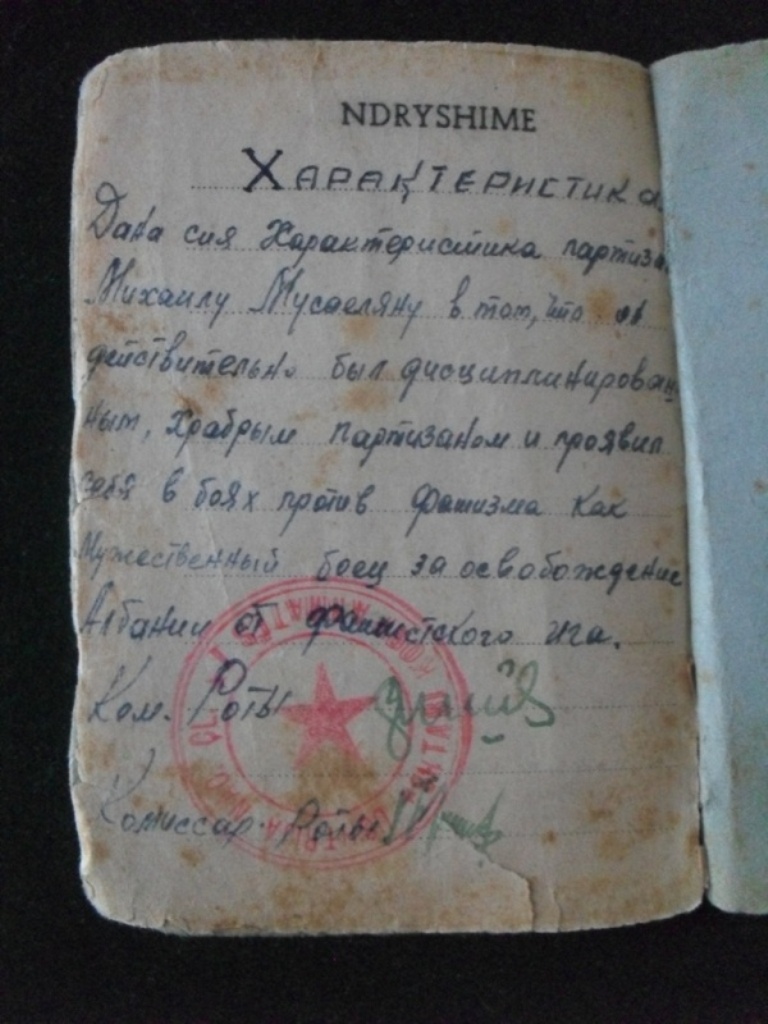 NDRYSHIME
Характеристика
Дана сия Характеристика партиза
Михаилу Мусаеляну в том, что он
действительно был дисциплинирован
ным, храбрым партизаном и проявил
себя в боях против фашизма как
мужественный боец за освобождение
Албании от фашистского ига.
Ком. Роты
Комиссар Роты